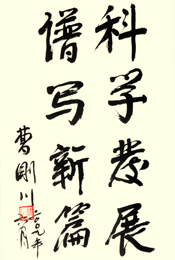 科学发展
谱写新篇
曹刚川
二〇〇九年
六月